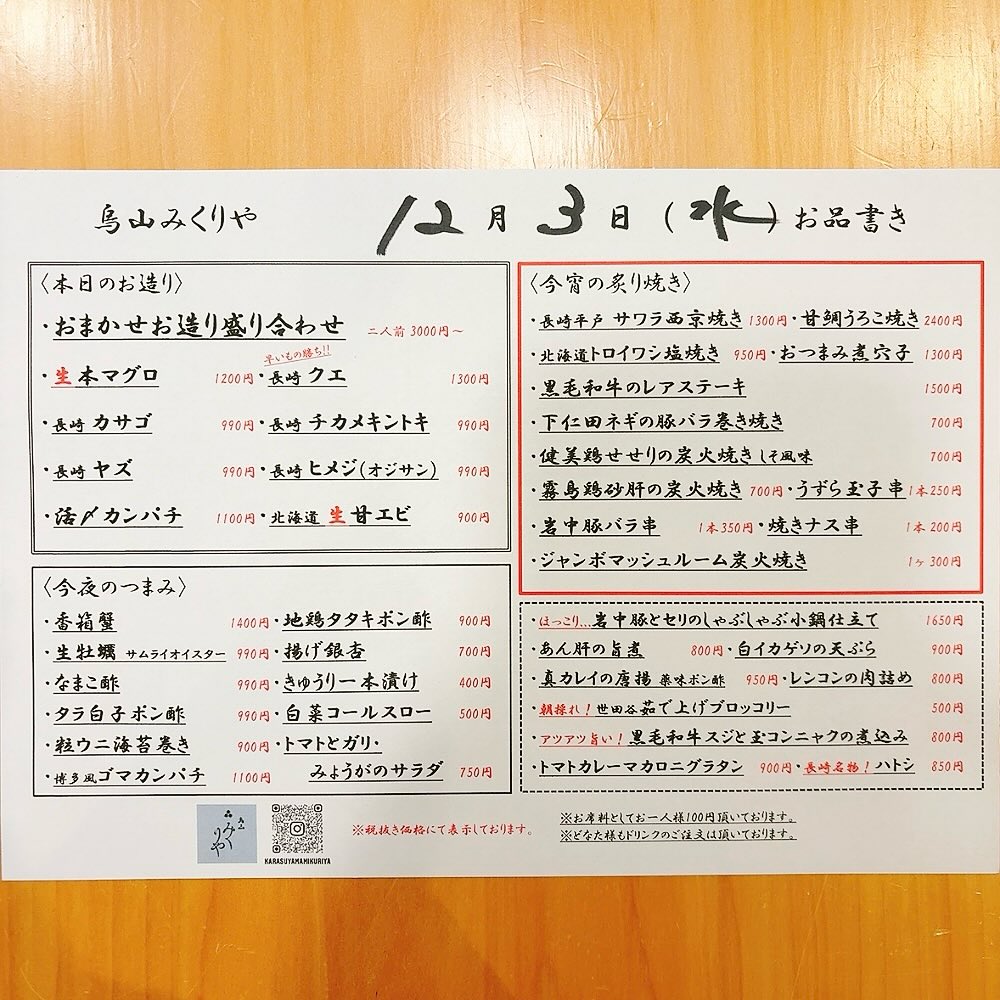 烏山みくりや 12月3日(水)お品書き
〈本日のお造り〉
・おまかせお造り盛り合わせ 二人前 3000円～
早いもの勝ち!!
・生本マグロ 1200円・長崎 クエ 1300円
・長崎 カサゴ 990円・長崎 チカメキントキ 990円
・長崎 ヤズ 990円・長崎 ヒメジ(オジサン) 990円
・活〆カンパチ 1100円・北海道 生甘エビ 900円
〈今夜のつまみ〉
・香箱蟹 1400円・地鶏タタキポン酢 900円
・生牡蠣 サムライオイスター 990円・揚げ銀杏 700円
・なまこ酢 990円・きゅうり一本漬け 400円
・タラ白子ポン酢 990円・白菜コールスロー 500円
・粒ウニ海苔巻き 900円・トマトとガリ・
・博多風ゴマカンパチ 1100円 みょうがのサラダ 750円
〈今宵の炙り焼き〉
・長崎平戸 サワラ西京焼き 1300円・甘鯛うろこ焼き 2400円
・北海道トロイワシ塩焼き 950円・おつまみ煮穴子 1300円
・黒毛和牛のレアステーキ 1500円
・下仁田ネギの豚バラ巻き焼き 700円
・健美鶏せせりの炭火焼き しそ風味 700円
・霧島鶏砂肝の炭火焼き 700円・うずら玉子串 1本250円
・岩中豚バラ串 1本350円・焼きナス串 1本200円
・ジャンボマッシュルーム炭火焼き 1ヶ300円
・ほっこり...岩中豚とセリのしゃぶしゃぶ小鍋仕立て 1650円
・あん肝の旨煮 800円・白イカゲソの天ぷら 900円
・真カレイの唐揚 薬味ポン酢 950円・レンコンの肉詰め 800円
・朝採れ!世田谷茹で上げブロッコリー 500円
・アツアツ旨い!黒毛和牛スジと玉コンニャクの煮込み 800円
・トマトカレーマカロニグラタン 900円・長崎名物!ハトシ 850円
みくりや
KARASUYAMAMIKURIYA
※税抜き価格にて表示しております。
※お席料としてお一人様100円頂いております。
※どなた様もドリンクのご注文は頂いております。